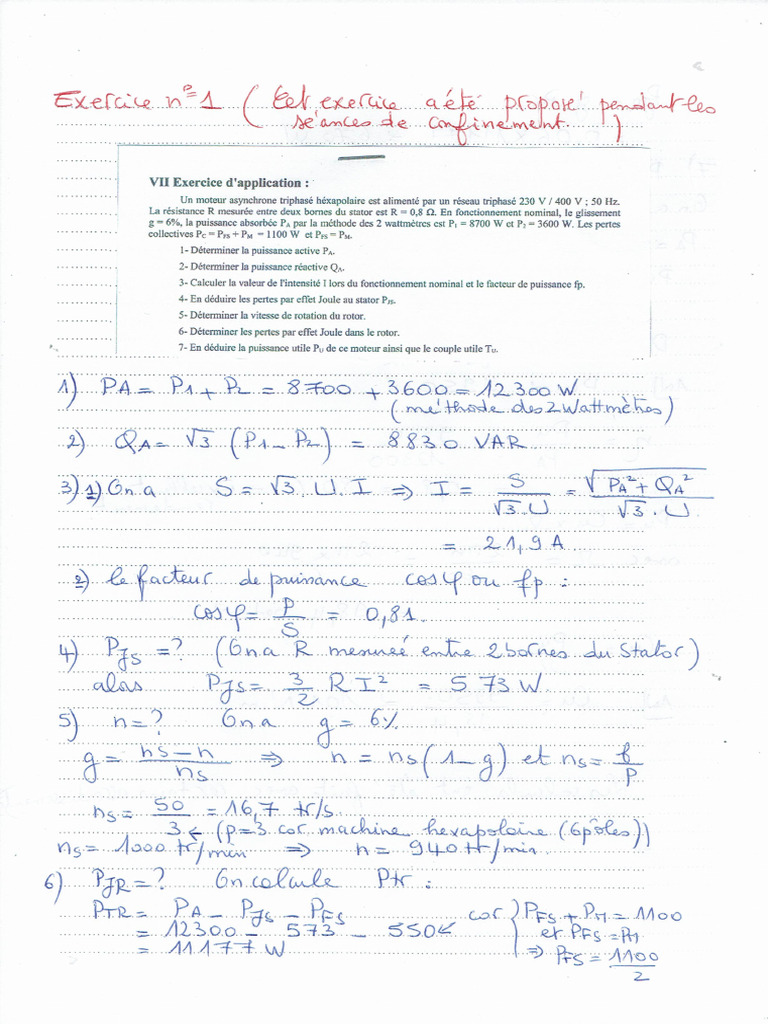 Exercice n°1 ( Cet exercice a été proposé pendant les
séances de confinement. )
VII Exercice d'application :
Un moteur asynchrone triphasé héxapolaire est alimenté par un réseau triphasé 230 V / 400 V ; 50 Hz.
La résistance R mesurée entre deux bornes du stator est R = 0,8 Ω. En fonctionnement nominal, le glissement
g = 6%, la puissance absorbée PA par la méthode des 2 wattmètres est P1 = 8700 W et P2 = 3600 W. Les pertes
collectives PC = PFS + PM = 1100 W et PFS = PM.
1- Déterminer la puissance active PA.
2- Déterminer la puissance réactive QA.
3- Calculer la valeur de l'intensité I lors du fonctionnement nominal et le facteur de puissance fp.
4- En déduire les pertes par effet Joule au stator PJS.
5- Déterminer la vitesse de rotation du rotor.
6- Déterminer les pertes par effet Joule dans le rotor.
7- En déduire la puissance utile PU de ce moteur ainsi que le couple utile TU.
1) PA = P1 + P2 = 8700 + 3600 = 12300 W
(méthode des 2 Wattmètres)
2) QA = √3 (P1 - P2) = 8830 VAR
3) 1) On a S = √3 . U . I ⇒ I = S / √3 . U = √PA² + QA² / √3 . U
= 21,9 A
2) le facteur de puissance cosφ ou fp :
cosφ = P / S = 0,81.
4) PJS = ? (On a R mesurée entre 2 bornes du Stator)
alors PJS = 3/2 R I² = 573 W.
5) n = ? On a g = 6%
g = ns - n / ns ⇒ n = ns (1 - g) et ns = f / p
ns = 50 / 3 = 16,7 tr/s
(p=3 car machine hexapolaire (6 pôles))
ns = 1000 tr/min ⇒ n = 940 tr/min.
6) PJR = ? On calcule Ptr :
PTR = PA - PJS - PFS car PFS + PM = 1100
= 12300 - 573 - 550 et PFS = PM
= 11177 W ⇒ PFS = 1100 / 2